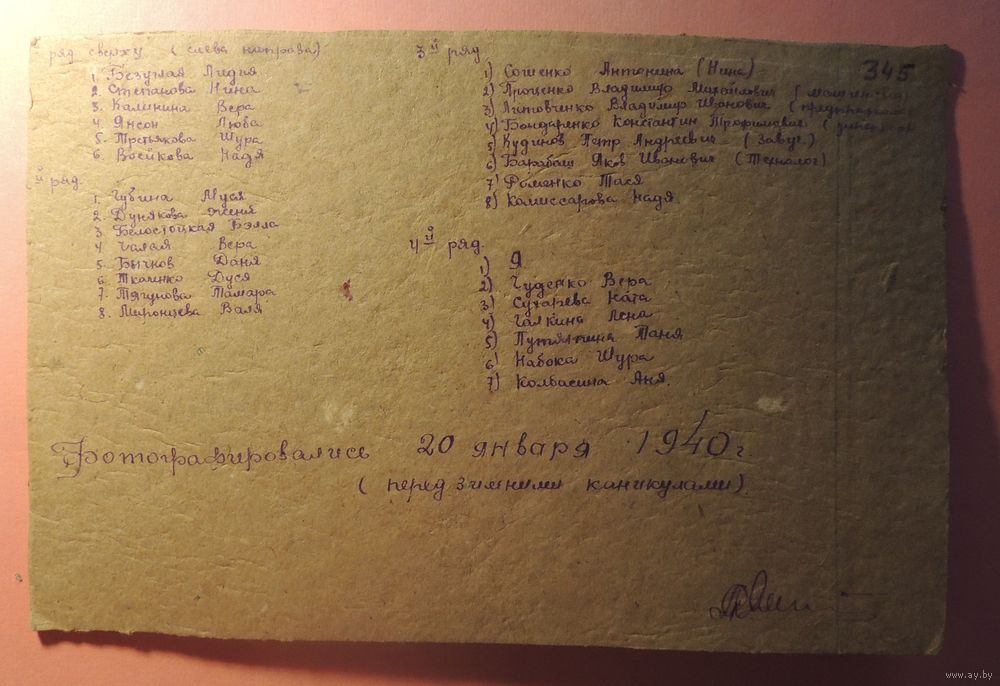 ряд сверху (слева направо)
1. Безуглая Лидия
2. Степанова Нина
3. Калинина Вера
4 Янсон Люба
5. Третьякова Шура
6. Воейкова Надя
й ряд.
1. Губина Муся
2. Дунякова Женя
3. Белостоцкая Бэлла
4 Чалая Вера
5. Бычков Даня
6. Ткаченко Дуся
7. Тягунова Тамара
8. Миронцева Валя
3й ряд
1) Сошенко Антонина (Нина)
2) Проценко Владимир Михайлович
3) Литовченко Владимир Иванович
4) Бондаренко Константин Трофимович
5) Кудинов Петр Андреевич (завуч.)
6) Барабаш Яков Иванович (технолог)
7) Фоменко Тася
8) Комиссарова Надя
4й ряд.
1) Я
2) Гуденко Вера
3) Сухарева Ната
4) Галкина Лена
5) Путятина Таня
6) Набока Шура
7) Колбасина Аня.
345
Фотографировались 20 января 1940 г.
(перед зимними каникулами)
www.ay.by